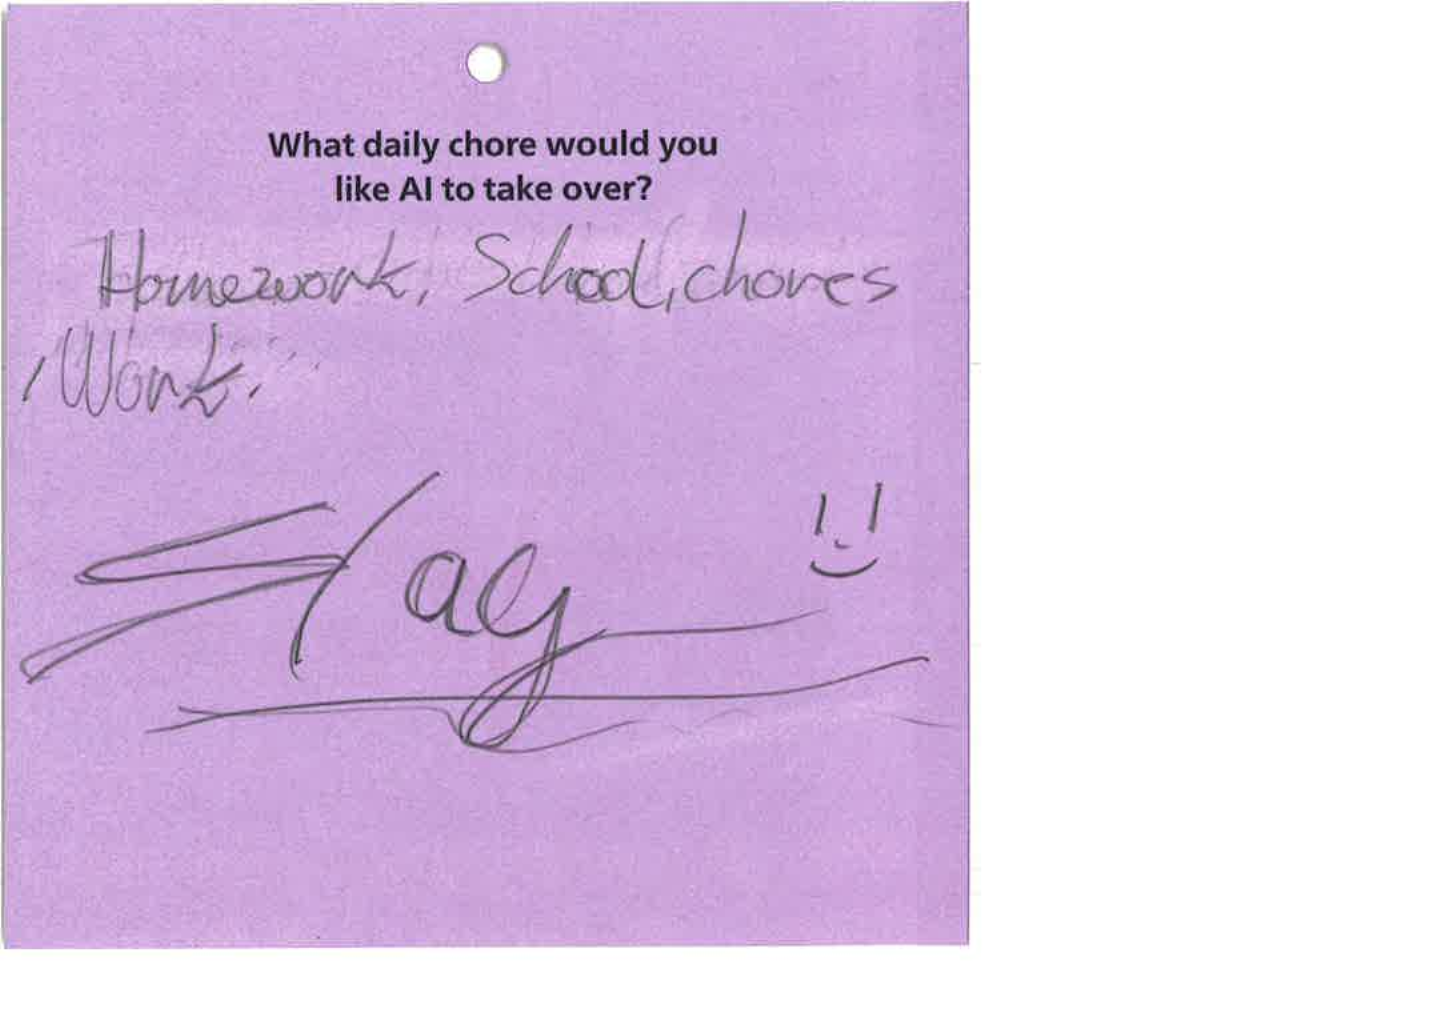 What daily chore would you
like AI to take over?
Homework, School, chores
, Work.
Slay